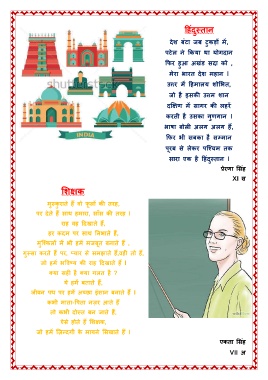 हिंदुस्तान
देश बंटा जब टुकड़ों में,
पटेल ने किया था योगदान
फिर हुआ अखंड सदा को ,
मेरा भारत देश महान ।
उत्तर में हिमालय शोभित,
जो है इसकी उत्तम शान
दक्षिण में सागर की लहरें
करती है उसका गुणगान ।
भाषा बोली अलग अलग हैं,
फिर भी सबका है सम्मान
पूरब से लेकर पश्चिम तक
सारा एक है हिंदुस्तान ।
प्रेरणा सिंह
XI स
INDIA
शिक्षक
मुस्कुराते हैं वो फूलों की तरह,
पर देते हैं साथ हमारा, साँस की तरह ।
यह राह दिखाते हैं,
हर कदम पर साथ निभाते हैं,
मुश्किलों में भी हमें मजबूत बनाते हैं ,
गुस्सा करते हैं पर, प्यार से समझाते हैं,वही तो हैं,
जो हमें भविष्य की राह दिखाते हैं ।
क्या सही है क्या गलत है ?
ये हमें बताते हैं,
जीवन पथ पर हमें अच्छा इंसान बनाते हैं ।
कभी माता-पिता नजर आते हैं
तो कभी दोस्त बन जाते हैं,
ऐसे होते हैं शिक्षक,
जो हमें ज़िन्दगी के मायने सिखाते हैं ।
एकता सिंह
VII अ